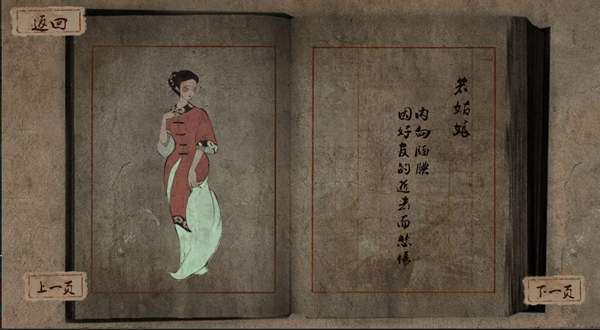 返回
若姑娘
内向腼腆
因好友的逝去而
上一页
下一页